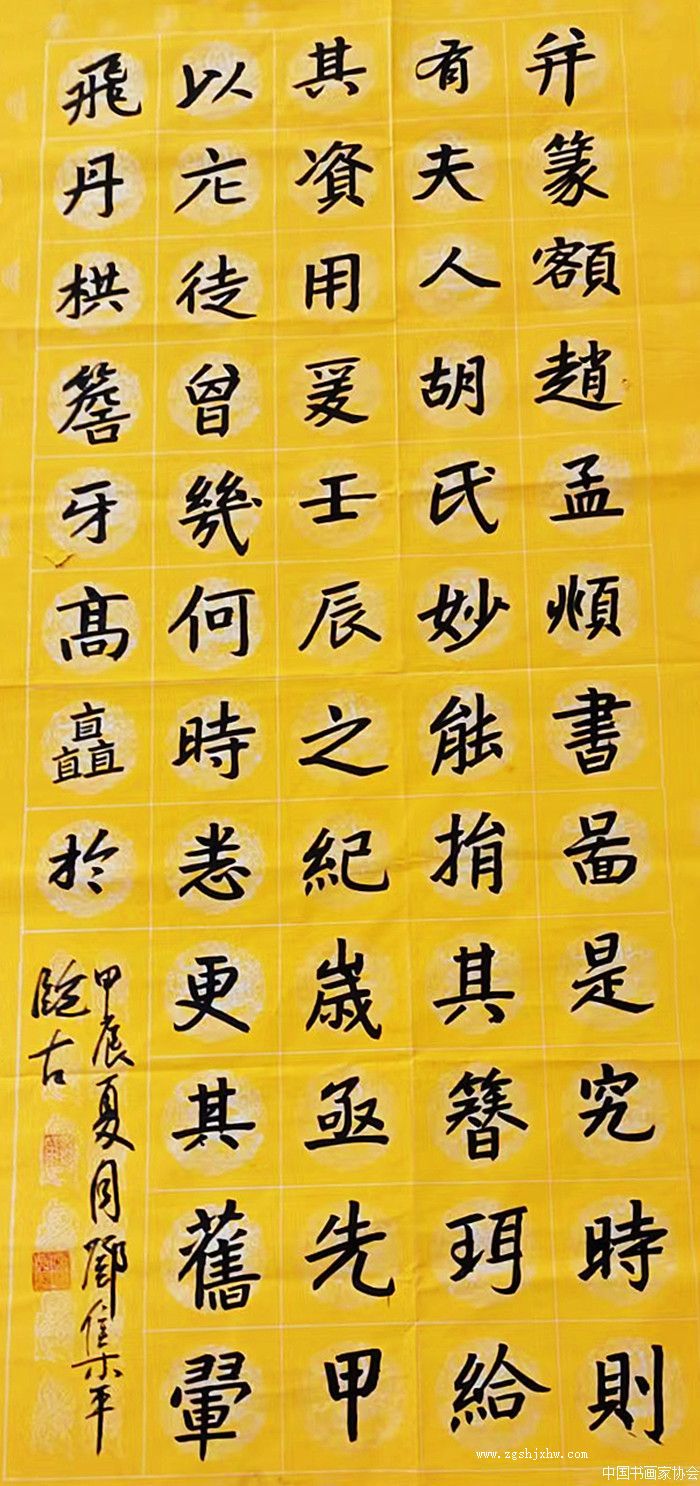 并篆額趙孟頫書啚是究時則
有夫人胡氏妙能捐其簪珥給
其資用爰壬辰之紀歲亟先甲
以庀徒曾幾何時悉更其舊翬
飛丹栱簷牙高矗於
甲辰夏月鄧集平
臨古
www.zgshjxhw.com
中国书画家协会